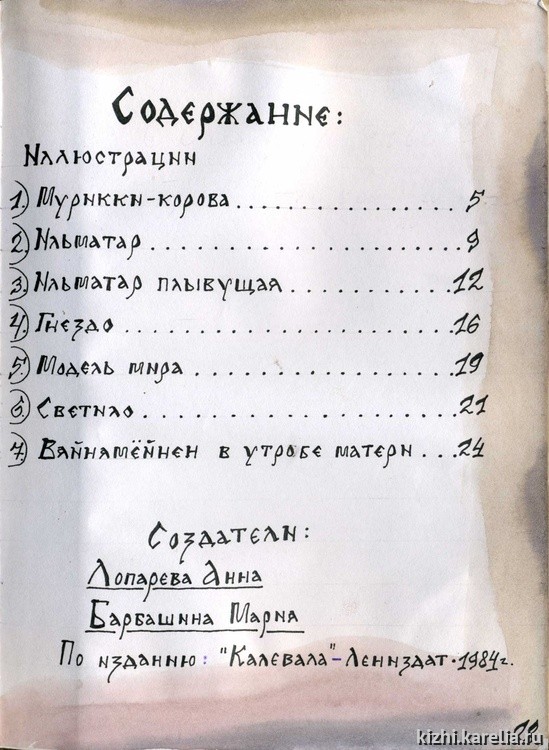 Содержание:
Иллюстрации
1) Мурикки-корова.................5
2) Ильматар......................9
3) Ильматар плывущая............12
4) Гнездо.......................16
5) Модель мира..................19
6) Светило......................21
7) Вяйнямёйнен в утробе матери...24
Создатели:
Лопарева Анна
Барбашина Мария
По изданию: "Калевала"-Лениздат.1984г.
kizhi.karelia.ru